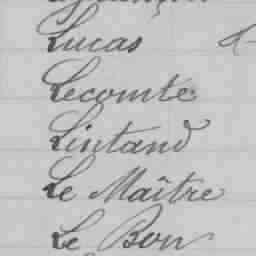 Lucas
Lecomte
Lintand
Le Maître
Le Bon